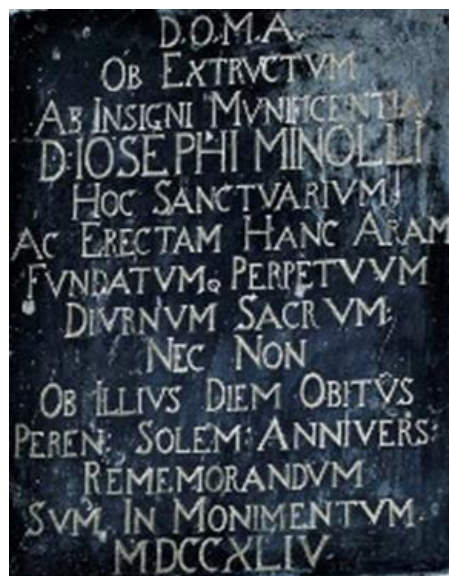 D.O.M.A.
OB EXTRVCTVM
AB INSIGNI MVNIFICENTIA
D: IOSEPHI MINOLLI
HOC SANCTVARIVM;
AC ERECTAM HANC ARAM
FVNDATVMQ PERPETVVM
DIVRNVM SACRVM:
NEC NON
OB ILLIVS DIEM OBITÛS
PEREN: SOLEM: ANNIVERS:
REMEMORANDVM
SVM IN MONIMENTVM.
MDCCXLIV.